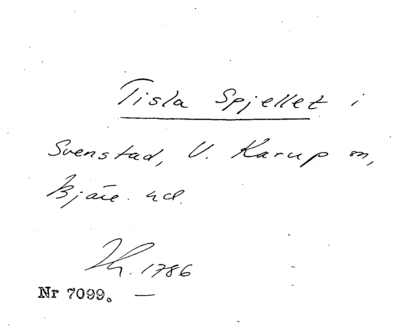 Tisla Spjellet i
Svenstad, V. Karup sn,
Bjäre hd.
Th. 1786
Nr 7099. —